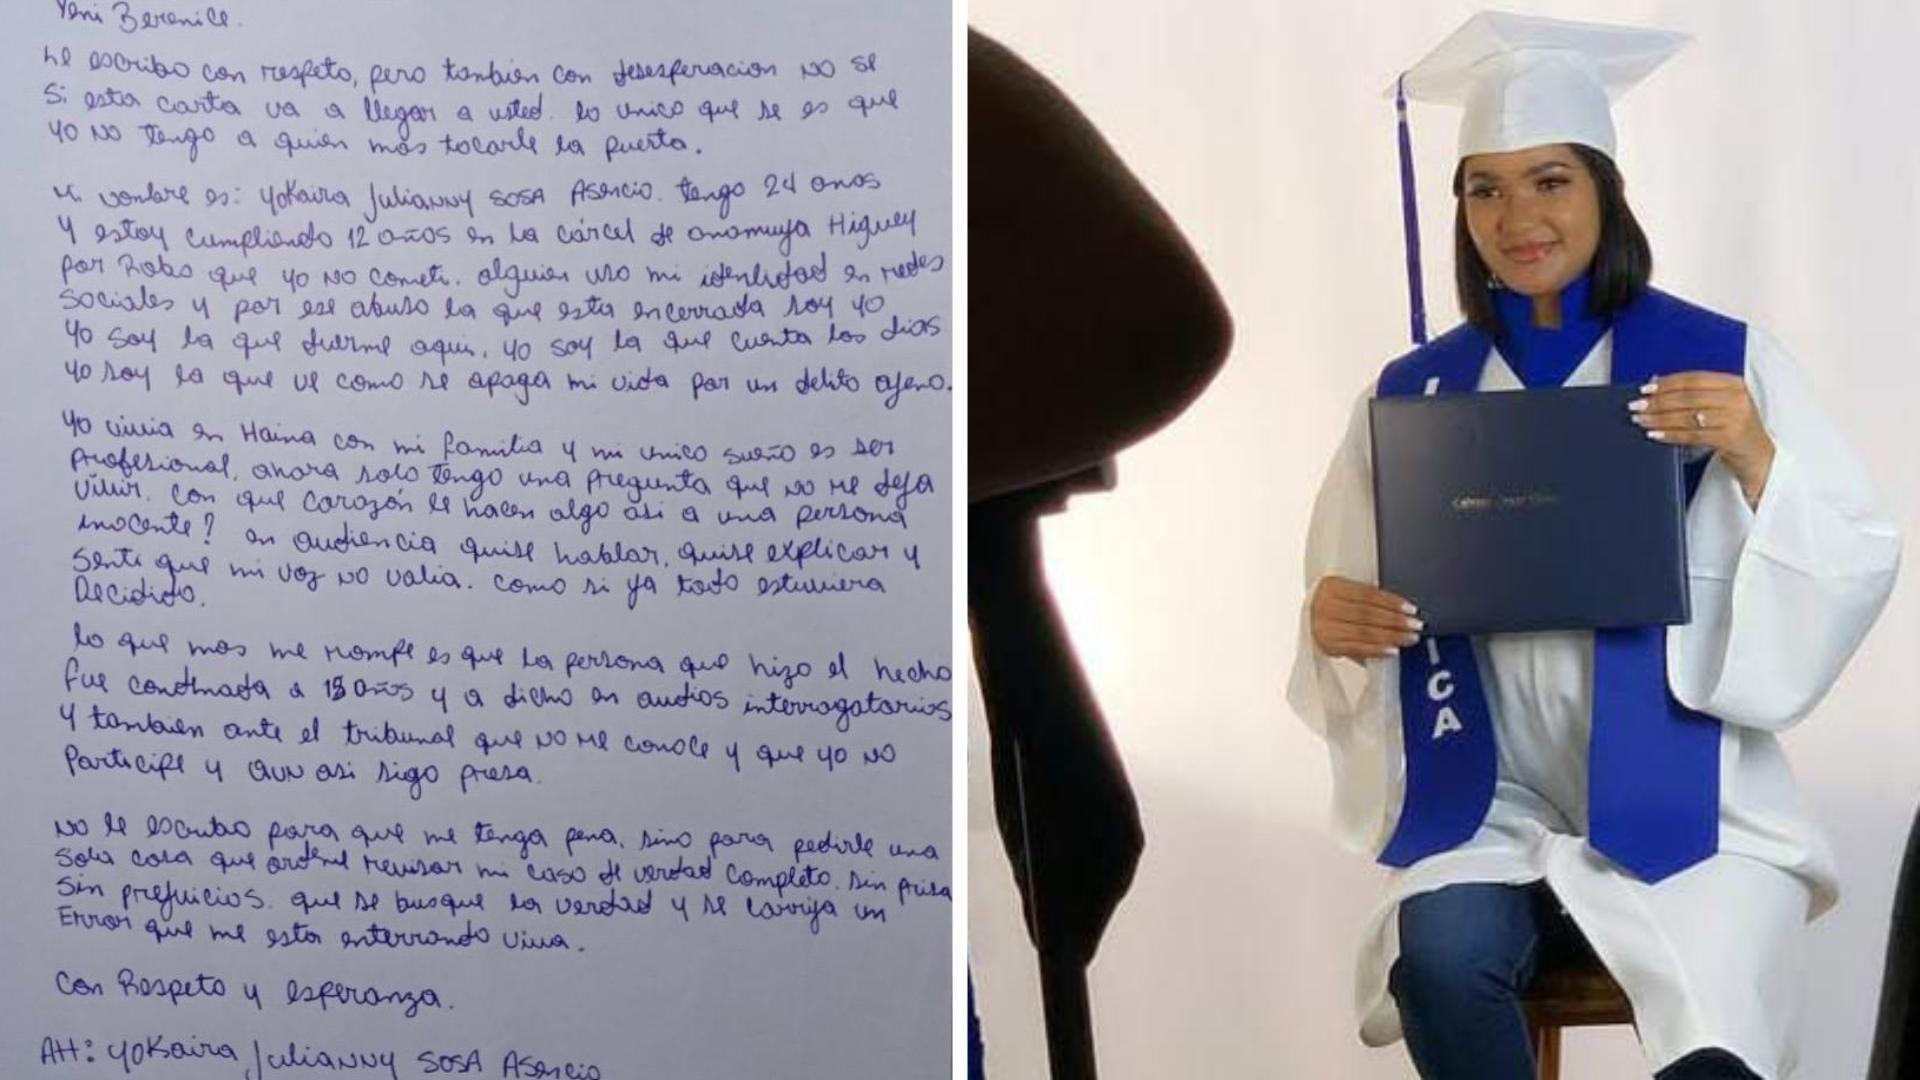 Yeni Berenice.
Le escribo con respeto, pero tambien con desesperacion no se
si esta carta va a llegar a usted. lo unico que se es que
yo no tengo a quien mas tocarle la puerta.
Mi nombre es: Yokaira Julianny Sosa Asencio. tengo 24 anos
y estoy cumpliendo 12 años en la cárcel de anamuya Higuey
por Robo que yo no cometi. alguien uso mi identidad en redes
sociales y por ese abuso la que esta encerrada soy yo
yo soy la que duerme aqui, yo soy la que cuenta los dias
yo soy la que ve como se apaga mi vida por un delito ajeno.
yo vivia en Haina con mi familia y mi unico sueño es ser
profesional, ahora solo tengo una pregunta que no me deja
vivir. con que corazón le hacen algo asi a una persona
inocente? en audiencia quise hablar, quise explicar y
senti que mi voz no valia. como si ya todo estuviera
Decidido.
lo que mas me rompe es que la persona que hizo el hecho
fue condenada a 15 años y a dicho en audios interrogatorios
y tambien ante el tribunal que no me conoce y que yo no
Participe y aun asi sigo presa.
no le escribo para que me tenga pena, sino para pedirle una
sola cosa que ordene revisar mi caso de verdad completo. sin prisa
sin prejuicios. que se busque la verdad y se corrija un
Error que me esta enterrando viva.
Con Respeto y esperanza.
Att: Yokaira Julianny Sosa Asencio
I
ICA